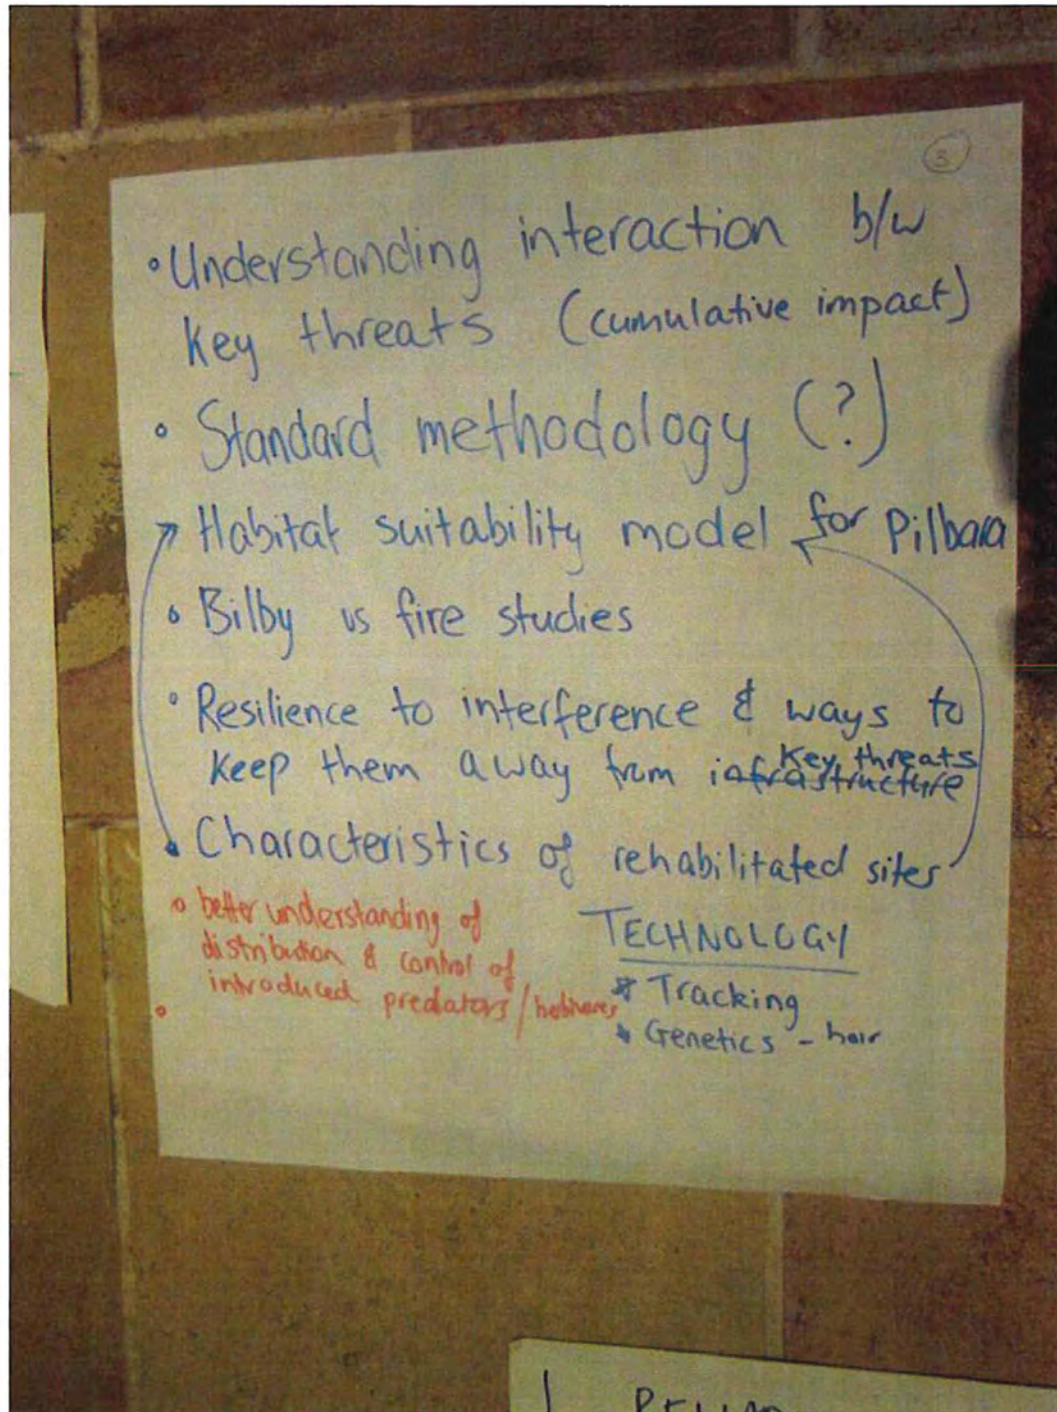 3
• Understanding interaction b/w
Key threats (cumulative impact)
• Standard methodology (?)
Habitat suitability model for Pilbara
• Bilby vs fire studies
• Resilience to interference & ways to
Key threats
keep them away from infrastructure
• Characteristics of rehabilitated sites
• better understanding of
distribution & control of
introduced predators/
TECHNOLOGY
* Tracking
* Genetics - hair